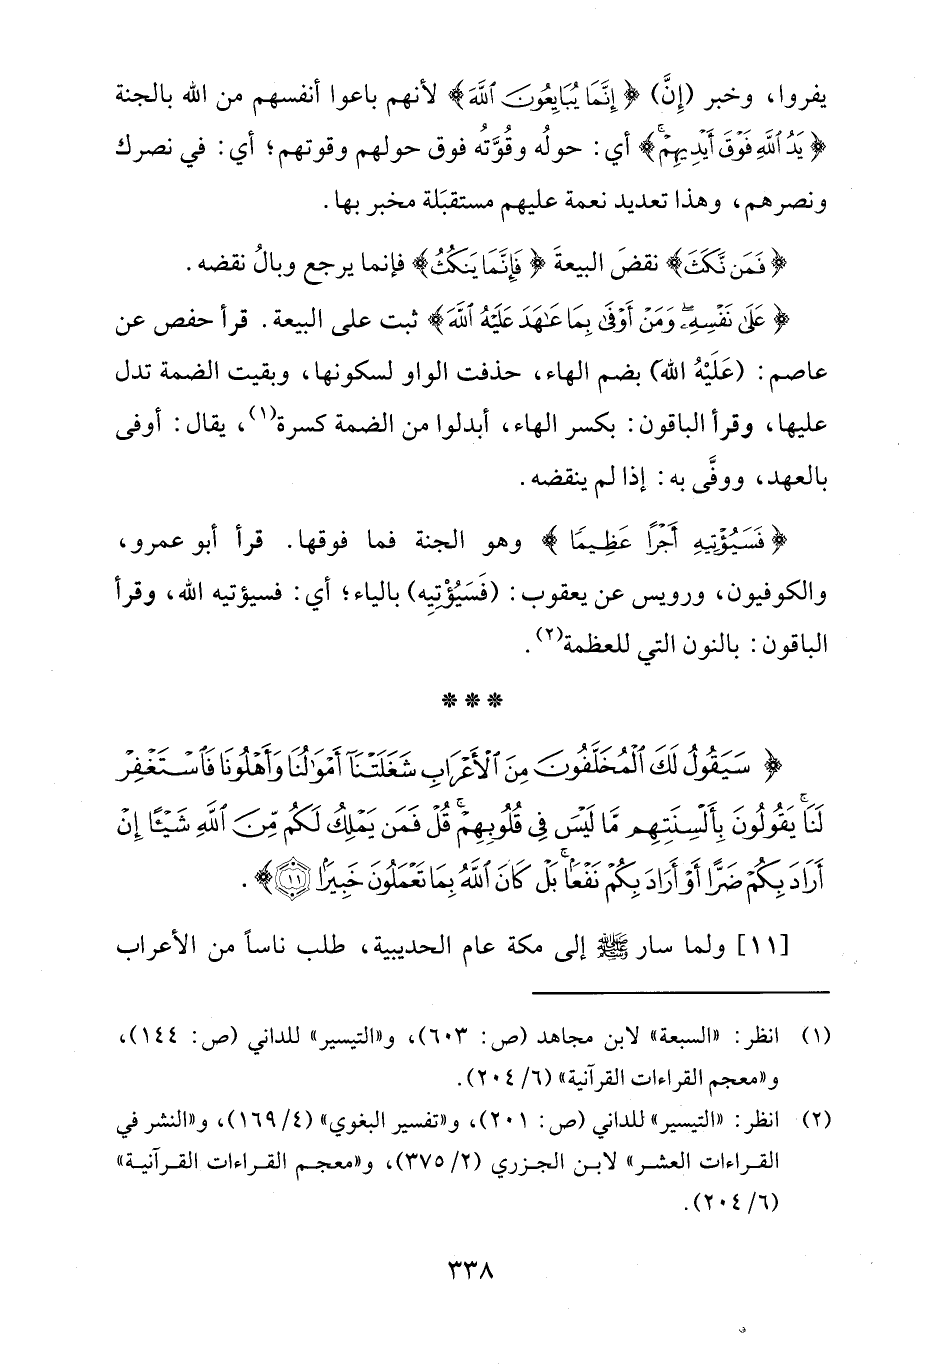 يفروا، وخبر (إِنَّ) ﴿إِنَّمَا يُبَايِعُونَ ٱللَّهَ﴾ لأنهم باعوا أنفسهم من الله بالجنة
﴿يَدُ ٱللَّهِ فَوْقَ أَيْدِيهِمْ ۚ﴾ أي: حولُه وقُوَّتُه فوق حولهم وقوتهم؛ أي: في نصرك
ونصرهم، وهذا تعديد نعمة عليهم مستقبَلة مخبر بها.
﴿فَمَن نَّكَثَ﴾ نقضَ البيعةَ ﴿فَإِنَّمَا يَنكُثُ﴾ فإنما يرجع وبالُ نقضه.
﴿عَلَىٰ نَفْسِهِۦ ۖ وَمَنْ أَوْفَىٰ بِمَا عَـٰهَدَ عَلَيْهُ ٱللَّهَ﴾ ثبت على البيعة. قرأ حفص عن
عاصم: (عَلَيْهُ اللهَ) بضم الهاء، حذفت الواو لسكونها، وبقيت الضمة تدل
عليها، وقرأ الباقون: بكسر الهاء، أبدلوا من الضمة كسرة(١)، يقال: أوفى
بالعهد، ووفَّى به: إذا لم ينقضه.
﴿فَسَيُؤْتِيهِ أَجْرًا عَظِيمًا﴾ وهو الجنة فما فوقها. قرأ أبو عمرو،
والكوفيون، ورويس عن يعقوب: (فَسَيُؤْتِيهِ) بالياء؛ أي: فسيؤتيه الله، وقرأ
الباقون: بالنون التي للعظمة(٢).
* * *
﴿سَيَقُولُ لَكَ ٱلْمُخَلَّفُونَ مِنَ ٱلْأَعْرَابِ شَغَلَتْنَآ أَمْوَٰلُنَا وَأَهْلُونَا فَٱسْتَغْفِرْ
لَنَا ۚ يَقُولُونَ بِأَلْسِنَتِهِم مَّا لَيْسَ فِى قُلُوبِهِمْ ۚ قُلْ فَمَن يَمْلِكُ لَكُم مِّنَ ٱللَّهِ شَيْـًٔا إِنْ
أَرَادَ بِكُمْ ضَرًّا أَوْ أَرَادَ بِكُمْ نَفْعًۢا ۚ بَلْ كَانَ ٱللَّهُ بِمَا تَعْمَلُونَ خَبِيرًۢا ١١﴾.
[١١] ولما سار ﷺ إلى مكة عام الحديبية، طلب ناساً من الأعراب
(١) انظر: «السبعة» لابن مجاهد (ص: ٦٠٣)، و«التيسير» للداني (ص: ١٤٤)،
و«معجم القراءات القرآنية» (٦/ ٢٠٤).
(٢) انظر: «التيسير» للداني (ص: ٢٠١)، و«تفسير البغوي» (٤/ ١٦٩)، و«النشر في
القراءات العشر» لابن الجزري (٢/ ٣٧٥)، و«معجم القراءات القرآنية»
(٦/ ٢٠٤).
٣٣٨